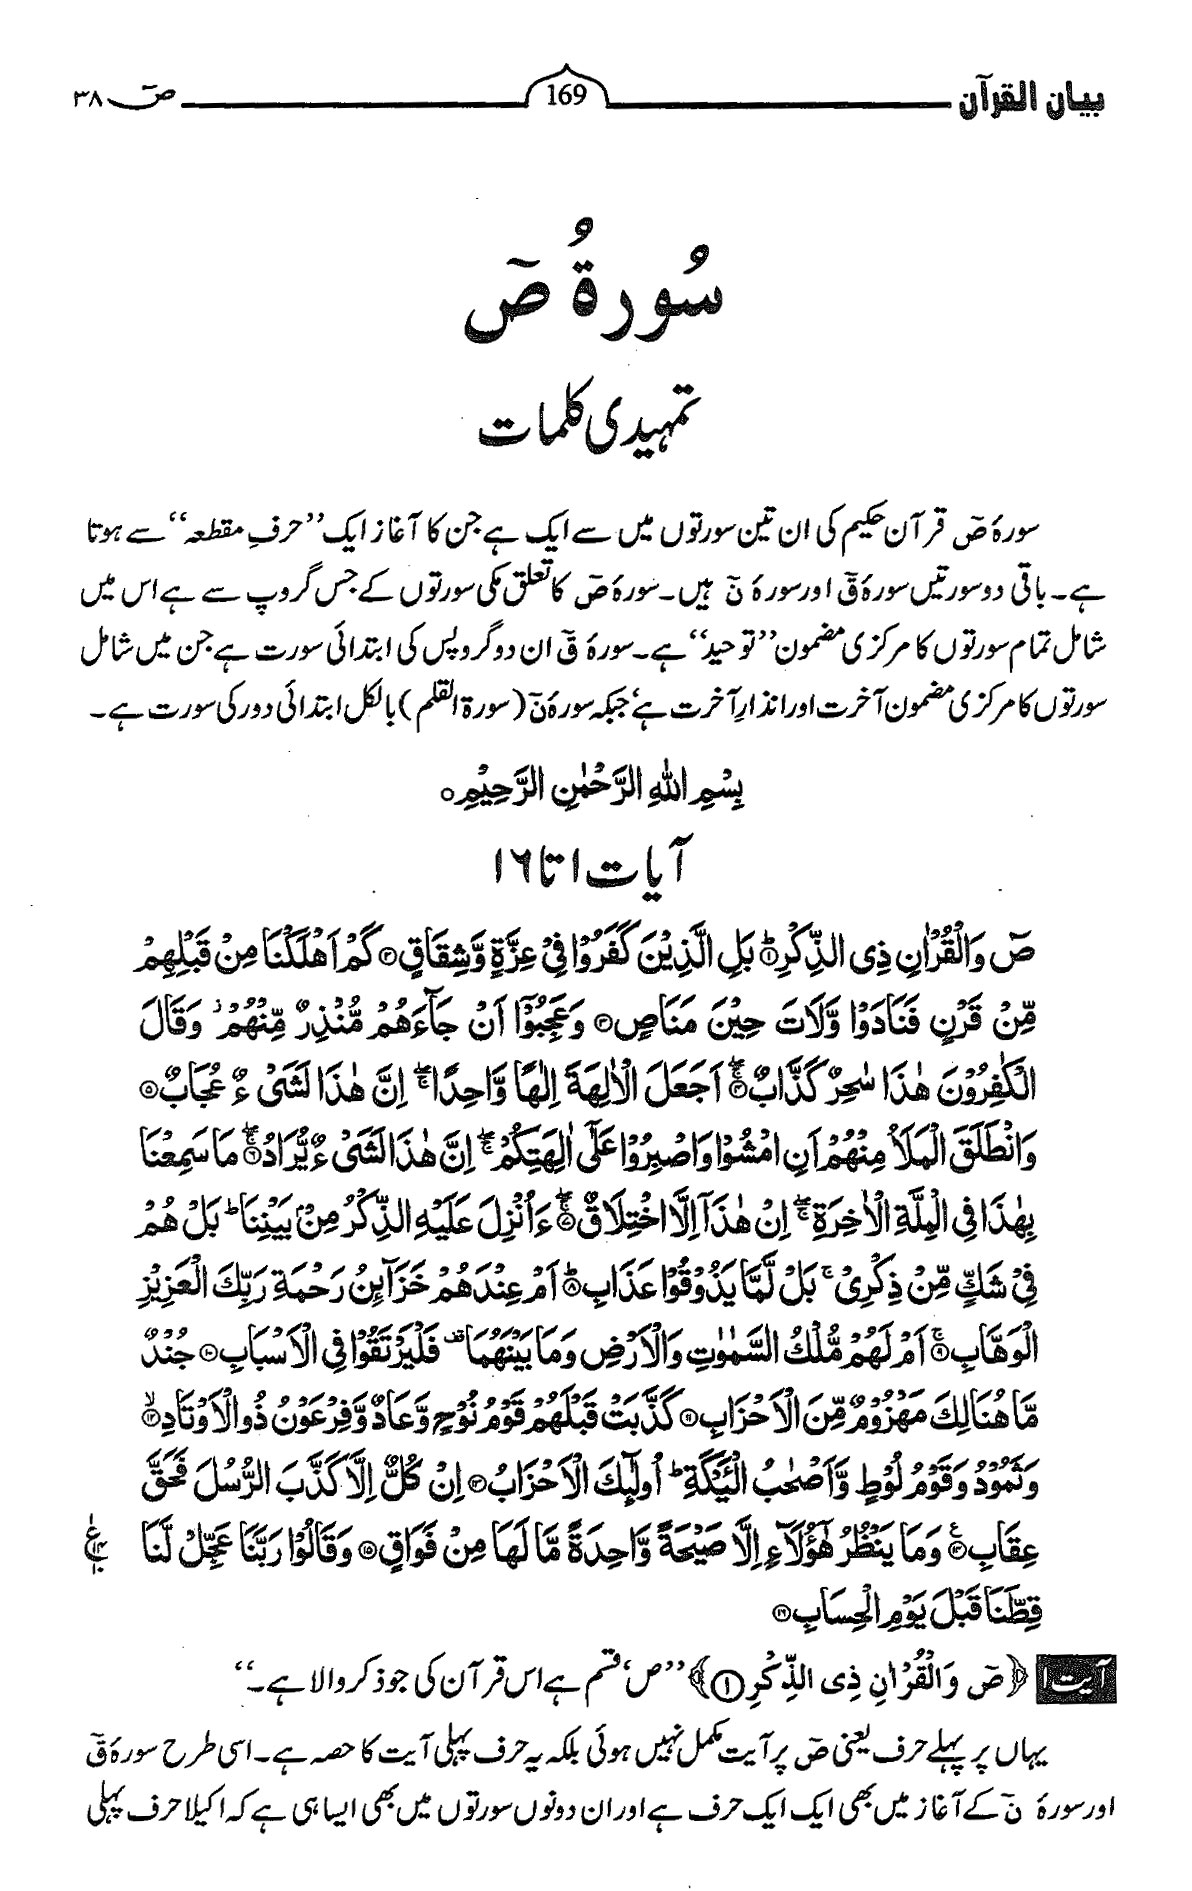 بیان القرآن 169 صٓ ۳۸
سُورۃُ صٓ
تمہیدی کلمات
سورۂ صٓ قرآن حکیم کی ان تین سورتوں میں سے ایک ہے جن کا آغاز ایک ’’حرفِ مقطعہ‘‘ سے ہوتا
ہے۔ باقی دو سورتیں سورۂ قٓ اور سورۂ نٓ ہیں۔ سورۂ صٓ کا تعلق مکی سورتوں کے جس گروپ سے ہے اس میں
شامل تمام سورتوں کا مرکزی مضمون ’’توحید‘‘ ہے۔ سورۂ قٓ ان دو گروپس کی ابتدائی سورت ہے جن میں شامل
سورتوں کا مرکزی مضمون آخرت اور انذارِ آخرت ہے‘ جبکہ سورۂ نٓ (سورۃ القلم) بالکل ابتدائی دور کی سورت ہے۔
بِسْمِ اللّٰہِ الرَّحْمٰنِ الرَّحِیْمِ○
آیات ۱ تا ۱۶
صٓ وَالْقُرْاٰنِ ذِی الذِّكْرِ ؕ﴿۱﴾ بَلِ الَّذِیْنَ كَفَرُوْا فِیْ عِزَّةٍ وَّشِقَاقٍ﴿۲﴾ كَمْ اَهْلَكْنَا مِنْ قَبْلِهِمْ
مِّنْ قَرْنٍ فَنَادَوْا وَّلَاتَ حِیْنَ مَنَاصٍ﴿۳﴾ وَعَجِبُوْۤا اَنْ جَآءَهُمْ مُّنْذِرٌ مِّنْهُمْ ؗ وَقَالَ
الْكٰفِرُوْنَ هٰذَا سٰحِرٌ كَذَّابٌ ۖۚ﴿۴﴾ اَجَعَلَ الْاٰلِهَةَ اِلٰهًا وَّاحِدًا ۖۚ اِنَّ هٰذَا لَشَیْءٌ عُجَابٌ﴿۵﴾
وَانْطَلَقَ الْمَلَاُ مِنْهُمْ اَنِ امْشُوْا وَاصْبِرُوْا عَلٰۤی اٰلِهَتِكُمْ ۖۚ اِنَّ هٰذَا لَشَیْءٌ یُّرَادُ ۖۚ﴿۶﴾ مَا سَمِعْنَا
بِهٰذَا فِی الْمِلَّةِ الْاٰخِرَةِ ۖۚ اِنْ هٰذَاۤ اِلَّا اخْتِلَاقٌ ۖۚ﴿۷﴾ ءَاُنْزِلَ عَلَیْهِ الذِّكْرُ مِنْۢ بَیْنِنَا ؕ بَلْ هُمْ
فِیْ شَكٍّ مِّنْ ذِكْرِیْ ۚ بَلْ لَّمَّا یَذُوْقُوْا عَذَابِ ؕ﴿۸﴾ اَمْ عِنْدَهُمْ خَزَآئِنُ رَحْمَةِ رَبِّكَ الْعَزِیْزِ
الْوَهَّابِ ۚ﴿۹﴾ اَمْ لَهُمْ مُّلْكُ السَّمٰوٰتِ وَالْاَرْضِ وَمَا بَیْنَهُمَا ۫ فَلْیَرْتَقُوْا فِی الْاَسْبَابِ﴿۱۰﴾ جُنْدٌ
مَّا هُنَالِكَ مَهْزُوْمٌ مِّنَ الْاَحْزَابِ﴿۱۱﴾ كَذَّبَتْ قَبْلَهُمْ قَوْمُ نُوْحٍ وَّعَادٌ وَّفِرْعَوْنُ ذُو الْاَوْتَادِ ۙ﴿۱۲﴾
وَثَمُوْدُ وَقَوْمُ لُوْطٍ وَّاَصْحٰبُ لْـَٔیْكَةِ ؕ اُولٰٓئِكَ الْاَحْزَابُ﴿۱۳﴾ اِنْ كُلٌّ اِلَّا كَذَّبَ الرُّسُلَ فَحَقَّ
عِقَابِ ۧ﴿۱۴﴾ وَمَا یَنْظُرُ هٰۤؤُلَآءِ اِلَّا صَیْحَةً وَّاحِدَةً مَّا لَهَا مِنْ فَوَاقٍ﴿۱۵﴾ وَقَالُوْا رَبَّنَا عَجِّلْ لَّنَا
قِطَّنَا قَبْلَ یَوْمِ الْحِسَابِ﴿۱۶﴾
آیت ۱ ﴿صٓ وَالْقُرْاٰنِ ذِی الذِّكْرِ ①﴾ ’’ص‘ قسم ہے اس قرآن کی جو ذکر والا ہے۔‘‘
یہاں پر پہلے حرف یعنی صٓ پر آیت مکمل نہیں ہوئی بلکہ یہ حرف پہلی آیت کا حصہ ہے۔ اسی طرح سورۂ قٓ
اور سورۂ نٓ کے آغاز میں بھی ایک ایک حرف ہے اور ان دونوں سورتوں میں بھی ایسا ہی ہے کہ اکیلا حرف پہلی